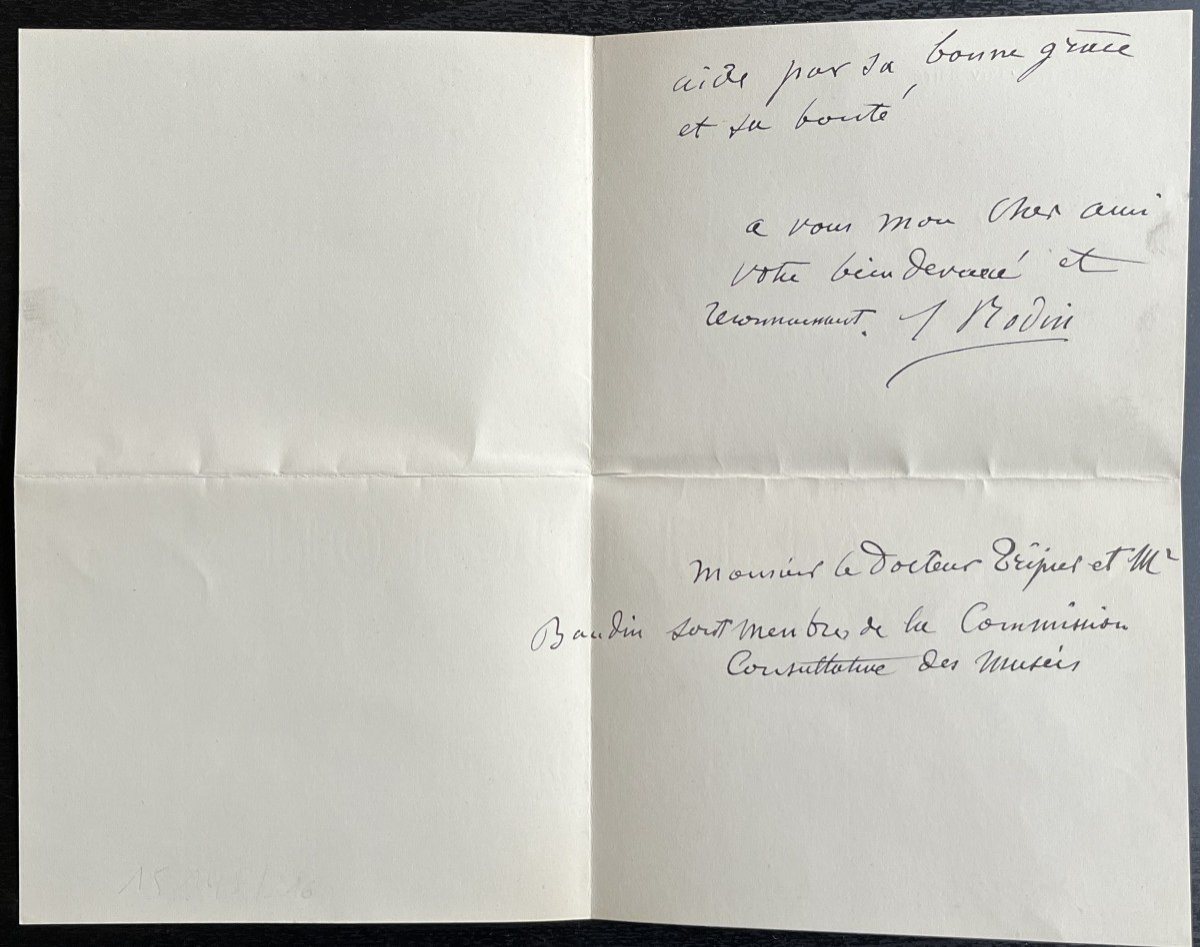 aide par sa bonne grâce
et sa bonté
a vous mon Cher ami
votre bien devoué et
reconnaissant. A Rodin
Monsieur le Docteur Tripier et Mr
Baudin sont membres de la Commission
Consultative des Musées